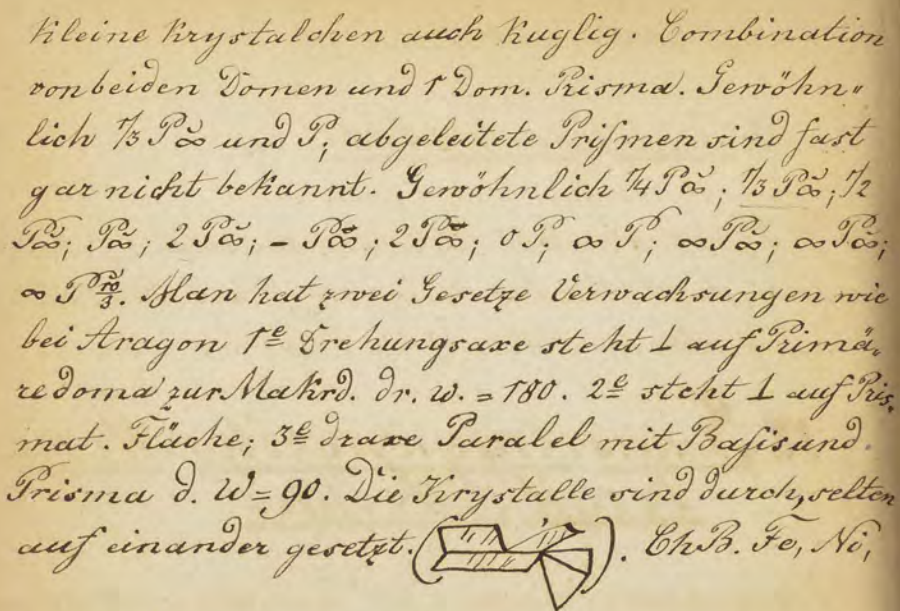 Kleine Krystalchen auch Kuglig. Combination
von beiden Domen und 1 Dom. Prisma. Gewöhn„
lich 1/3 P̆∞ und P, abgeleitete Priſmen sind fast
gar nicht bekannt. Gewöhnlich 1/4 P̆∞; 1/3 P̆∞; 1/2
P̆∞; P̆∞; 2 P̆∞; – P̄∞; 2 P̄∞; 0 P; ∞ P; ∞ P̆∞; ∞ P̄∞;
∞ P 10/3. Man hat zwei Gesetze Verwachsungen wie
bei Aragon 1e Drehungsaxe steht ⊥ auf Primä„
re doma zur Makrd. dr. w. = 180. 2e steht ⊥ auf Pris„
mat. Fläche; 3e draxe Paralel mit Baſis und
Prisma d. W = 90. Die Krystalle sind durch, selten
auf einander gesetzt. ( ). ChB. Fe, Ni,